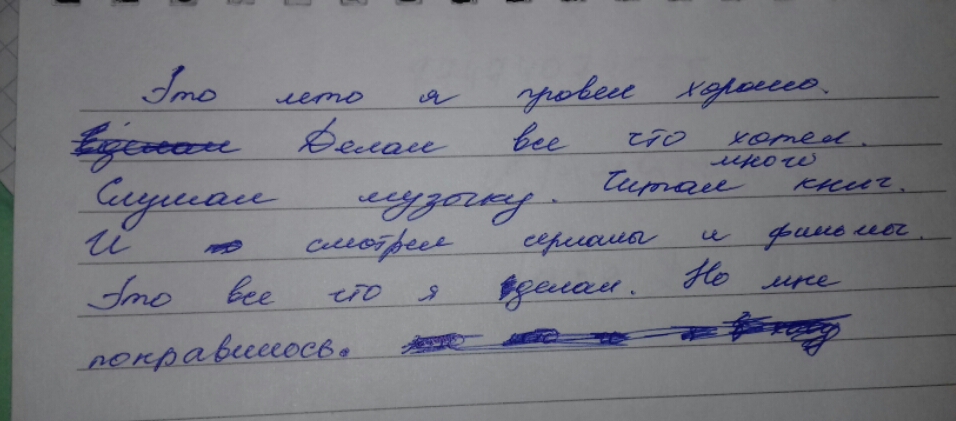 Это лето я провел хорошо.
Делал все что хотел.
Слушал музыку. Читал много книг.
И смотрел сериалы и фильмы.
Это все что я делал. Но мне
понравилось.